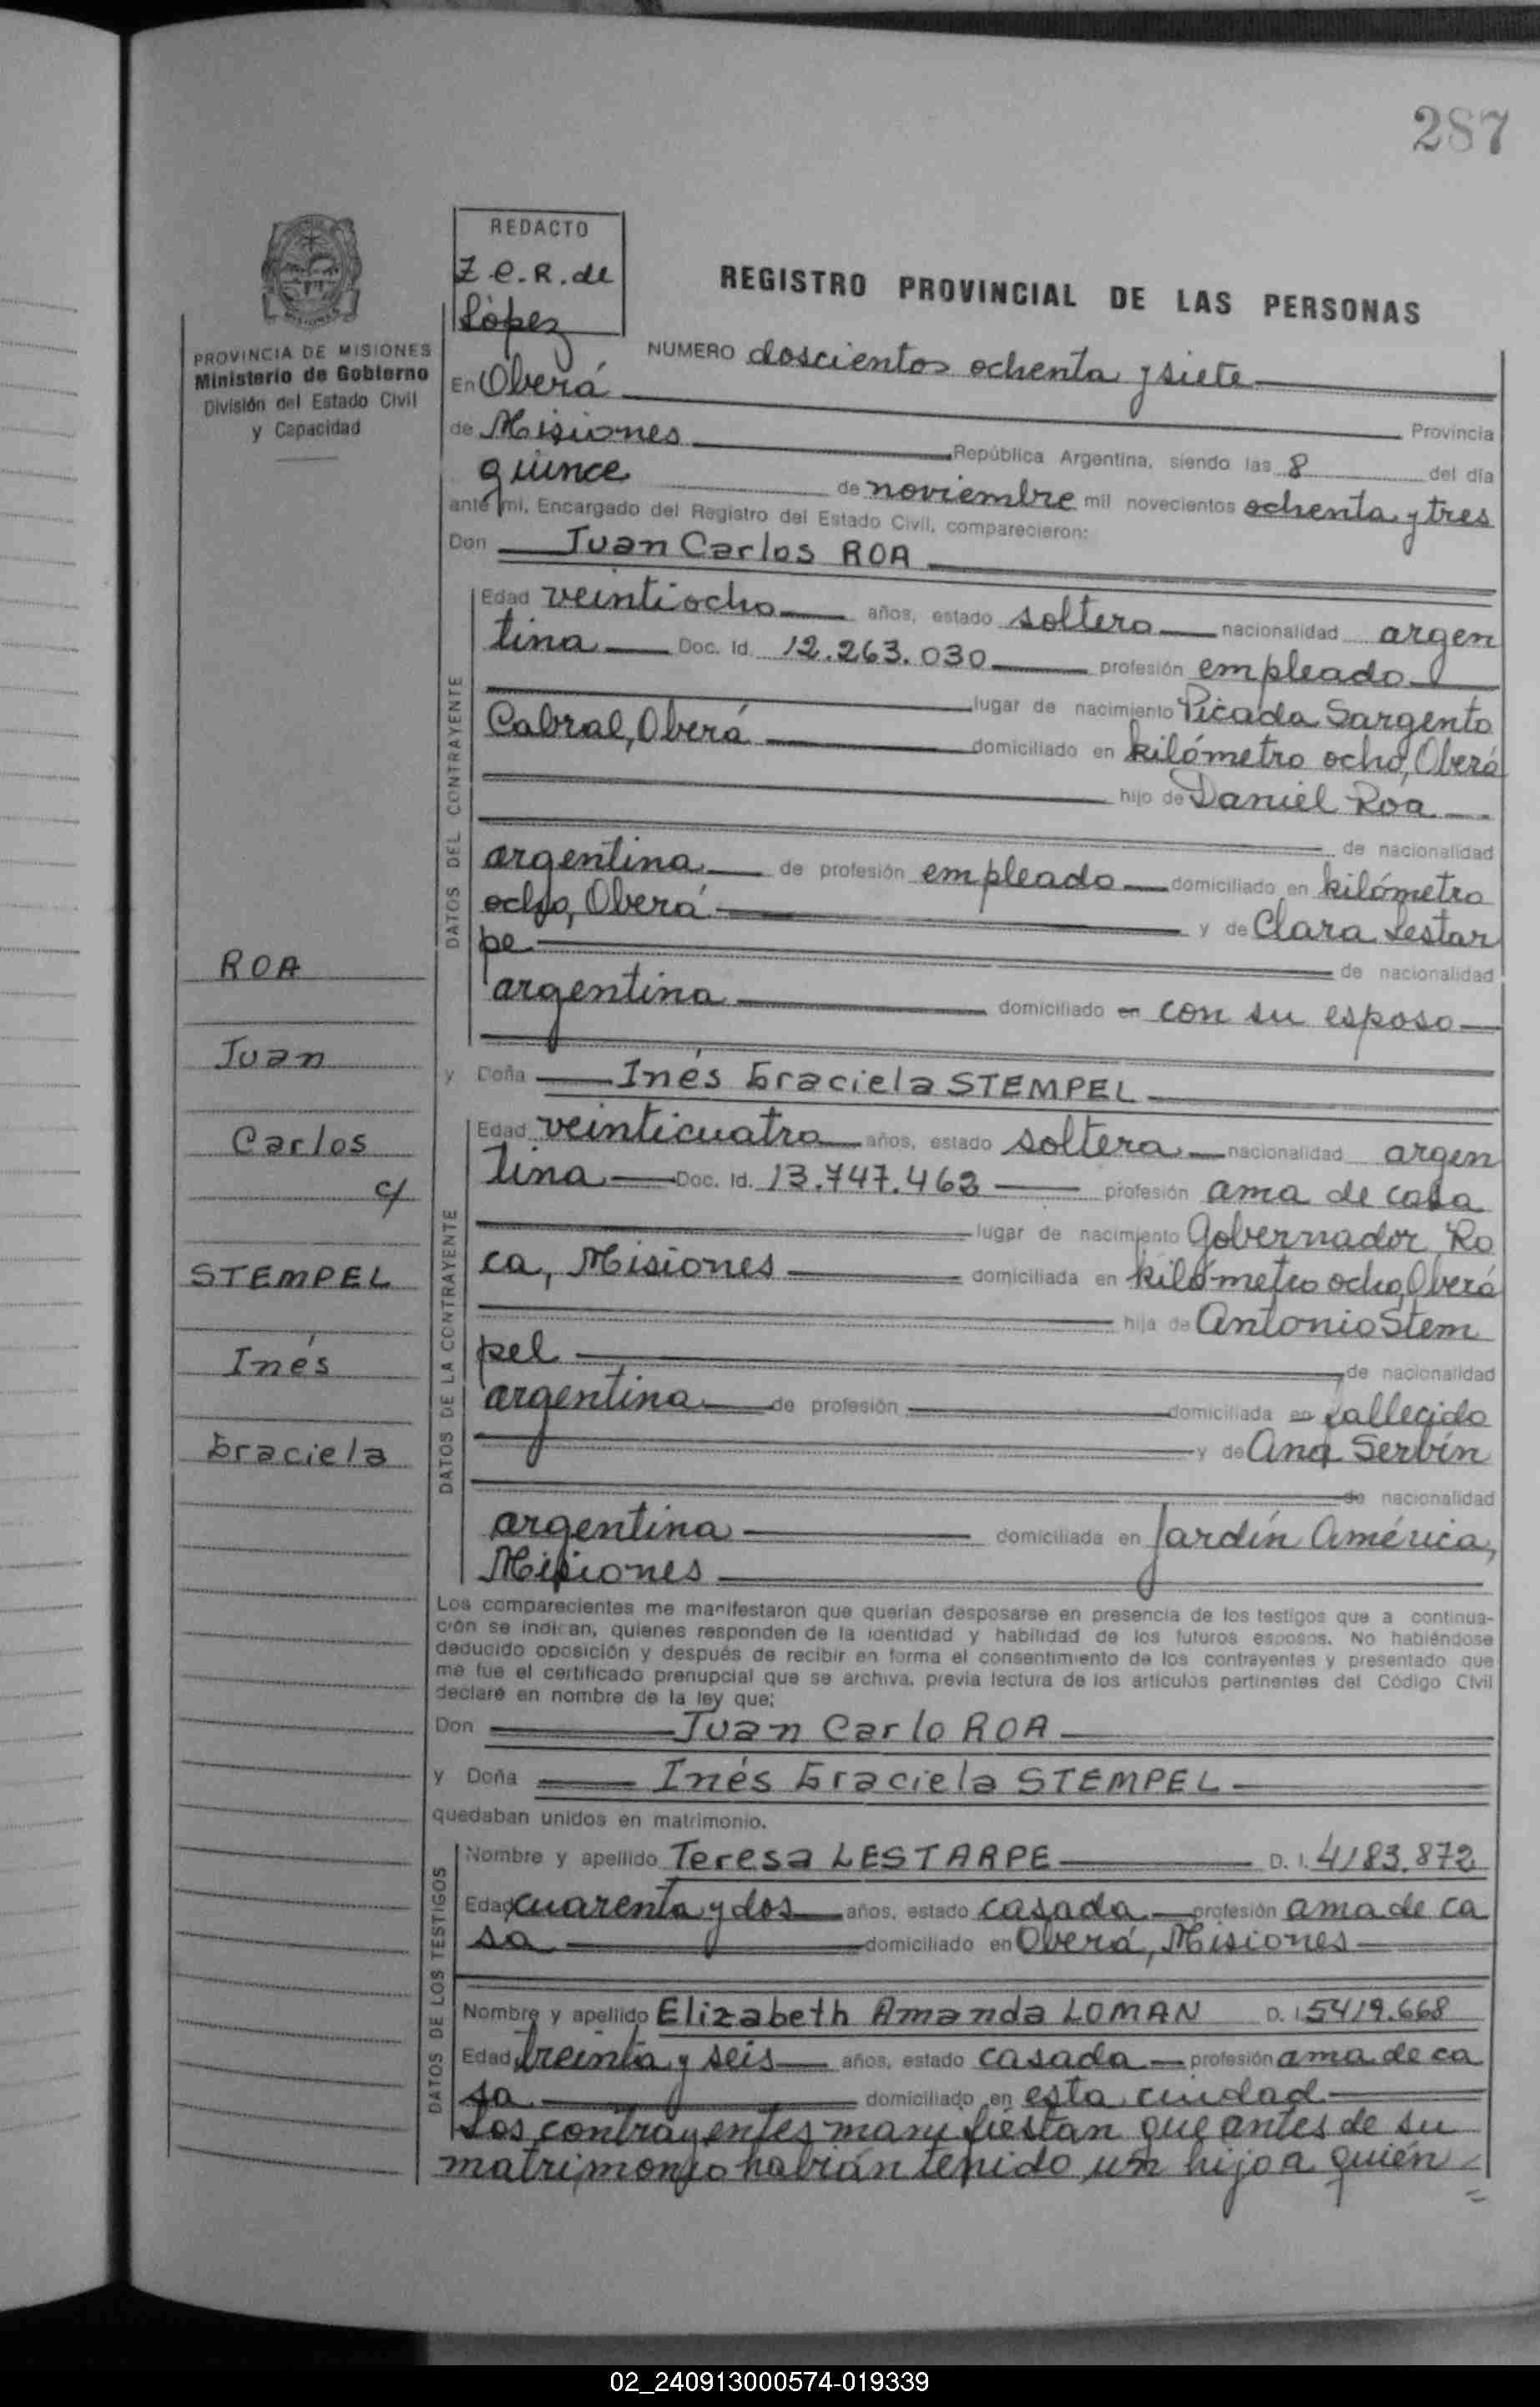 287
REDACTO
Z.E.R. de
López
REGISTRO PROVINCIAL DE LAS PERSONAS
PROVINCIA DE MISIONES
Ministerio de Gobierno
División del Estado Civil
y Capacidad
NUMERO doscientos ochenta y siete
En Oberá
Provincia
de Misiones República Argentina, siendo las 8 del día
quince de noviembre mil novecientos ochenta y tres
ante mi, Encargado del Registro del Estado Civil, comparecieron:
Don Juan Carlos ROA
DATOS DEL CONTRAYENTE
Edad veintiocho años, estado soltero nacionalidad argen
tina Doc. Id. 12.263.030 profesión empleado
lugar de nacimiento Picada Sargento
Cabral, Oberá domiciliado en kilómetro ocho, Oberá
hijo de Daniel Roa
de nacionalidad
argentina de profesión empleado domiciliado en kilómetro
ocho, Oberá y de Clara Lestar
pe de nacionalidad
argentina domiciliado en con su esposo
y Doña Inés Graciela STEMPEL
DATOS DE LA CONTRAYENTE
Edad veinticuatro años, estado soltera nacionalidad argen
tina Doc. Id. 13.747.463 profesión ama de casa
lugar de nacimiento Gobernador Ro
ca, Misiones domiciliada en kilómetro ocho, Oberá
hija de Antonio Stem
pel de nacionalidad
argentina de profesión domiciliada en fallecido
y de Ana Servín
de nacionalidad
argentina domiciliada en Jardín América,
Misiones
ROA
Juan
Carlos
c/
STEMPEL
Inés
Graciela
Los comparecientes me manifestaron que querían desposarse en presencia de los testigos que a continua-
ción se indican, quienes responden de la identidad y habilidad de los futuros esposos. No habiéndose
deducido oposición y después de recibir en forma el consentimiento de los contrayentes y presentado que
me fue el certificado prenupcial que se archiva, previa lectura de los artículos pertinentes del Código Civil
declaré en nombre de la ley que:
Don Juan Carlo ROA
y Doña Inés Graciela STEMPEL
quedaban unidos en matrimonio.
DATOS DE LOS TESTIGOS
Nombre y apellido Teresa LESTARPE D. I. 4183.872
Edad cuarenta y dos años, estado casada profesión ama de ca
sa domiciliado en Oberá, Misiones
Nombre y apellido Elizabeth Amanda LOMAN D. I. 5419.668
Edad treinta y seis años, estado casada profesión ama de ca
sa domiciliado en esta ciudad
Los contrayentes manifiestan que antes de su
matrimonio habían tenido un hijo a quién =
02_240913000574-019339